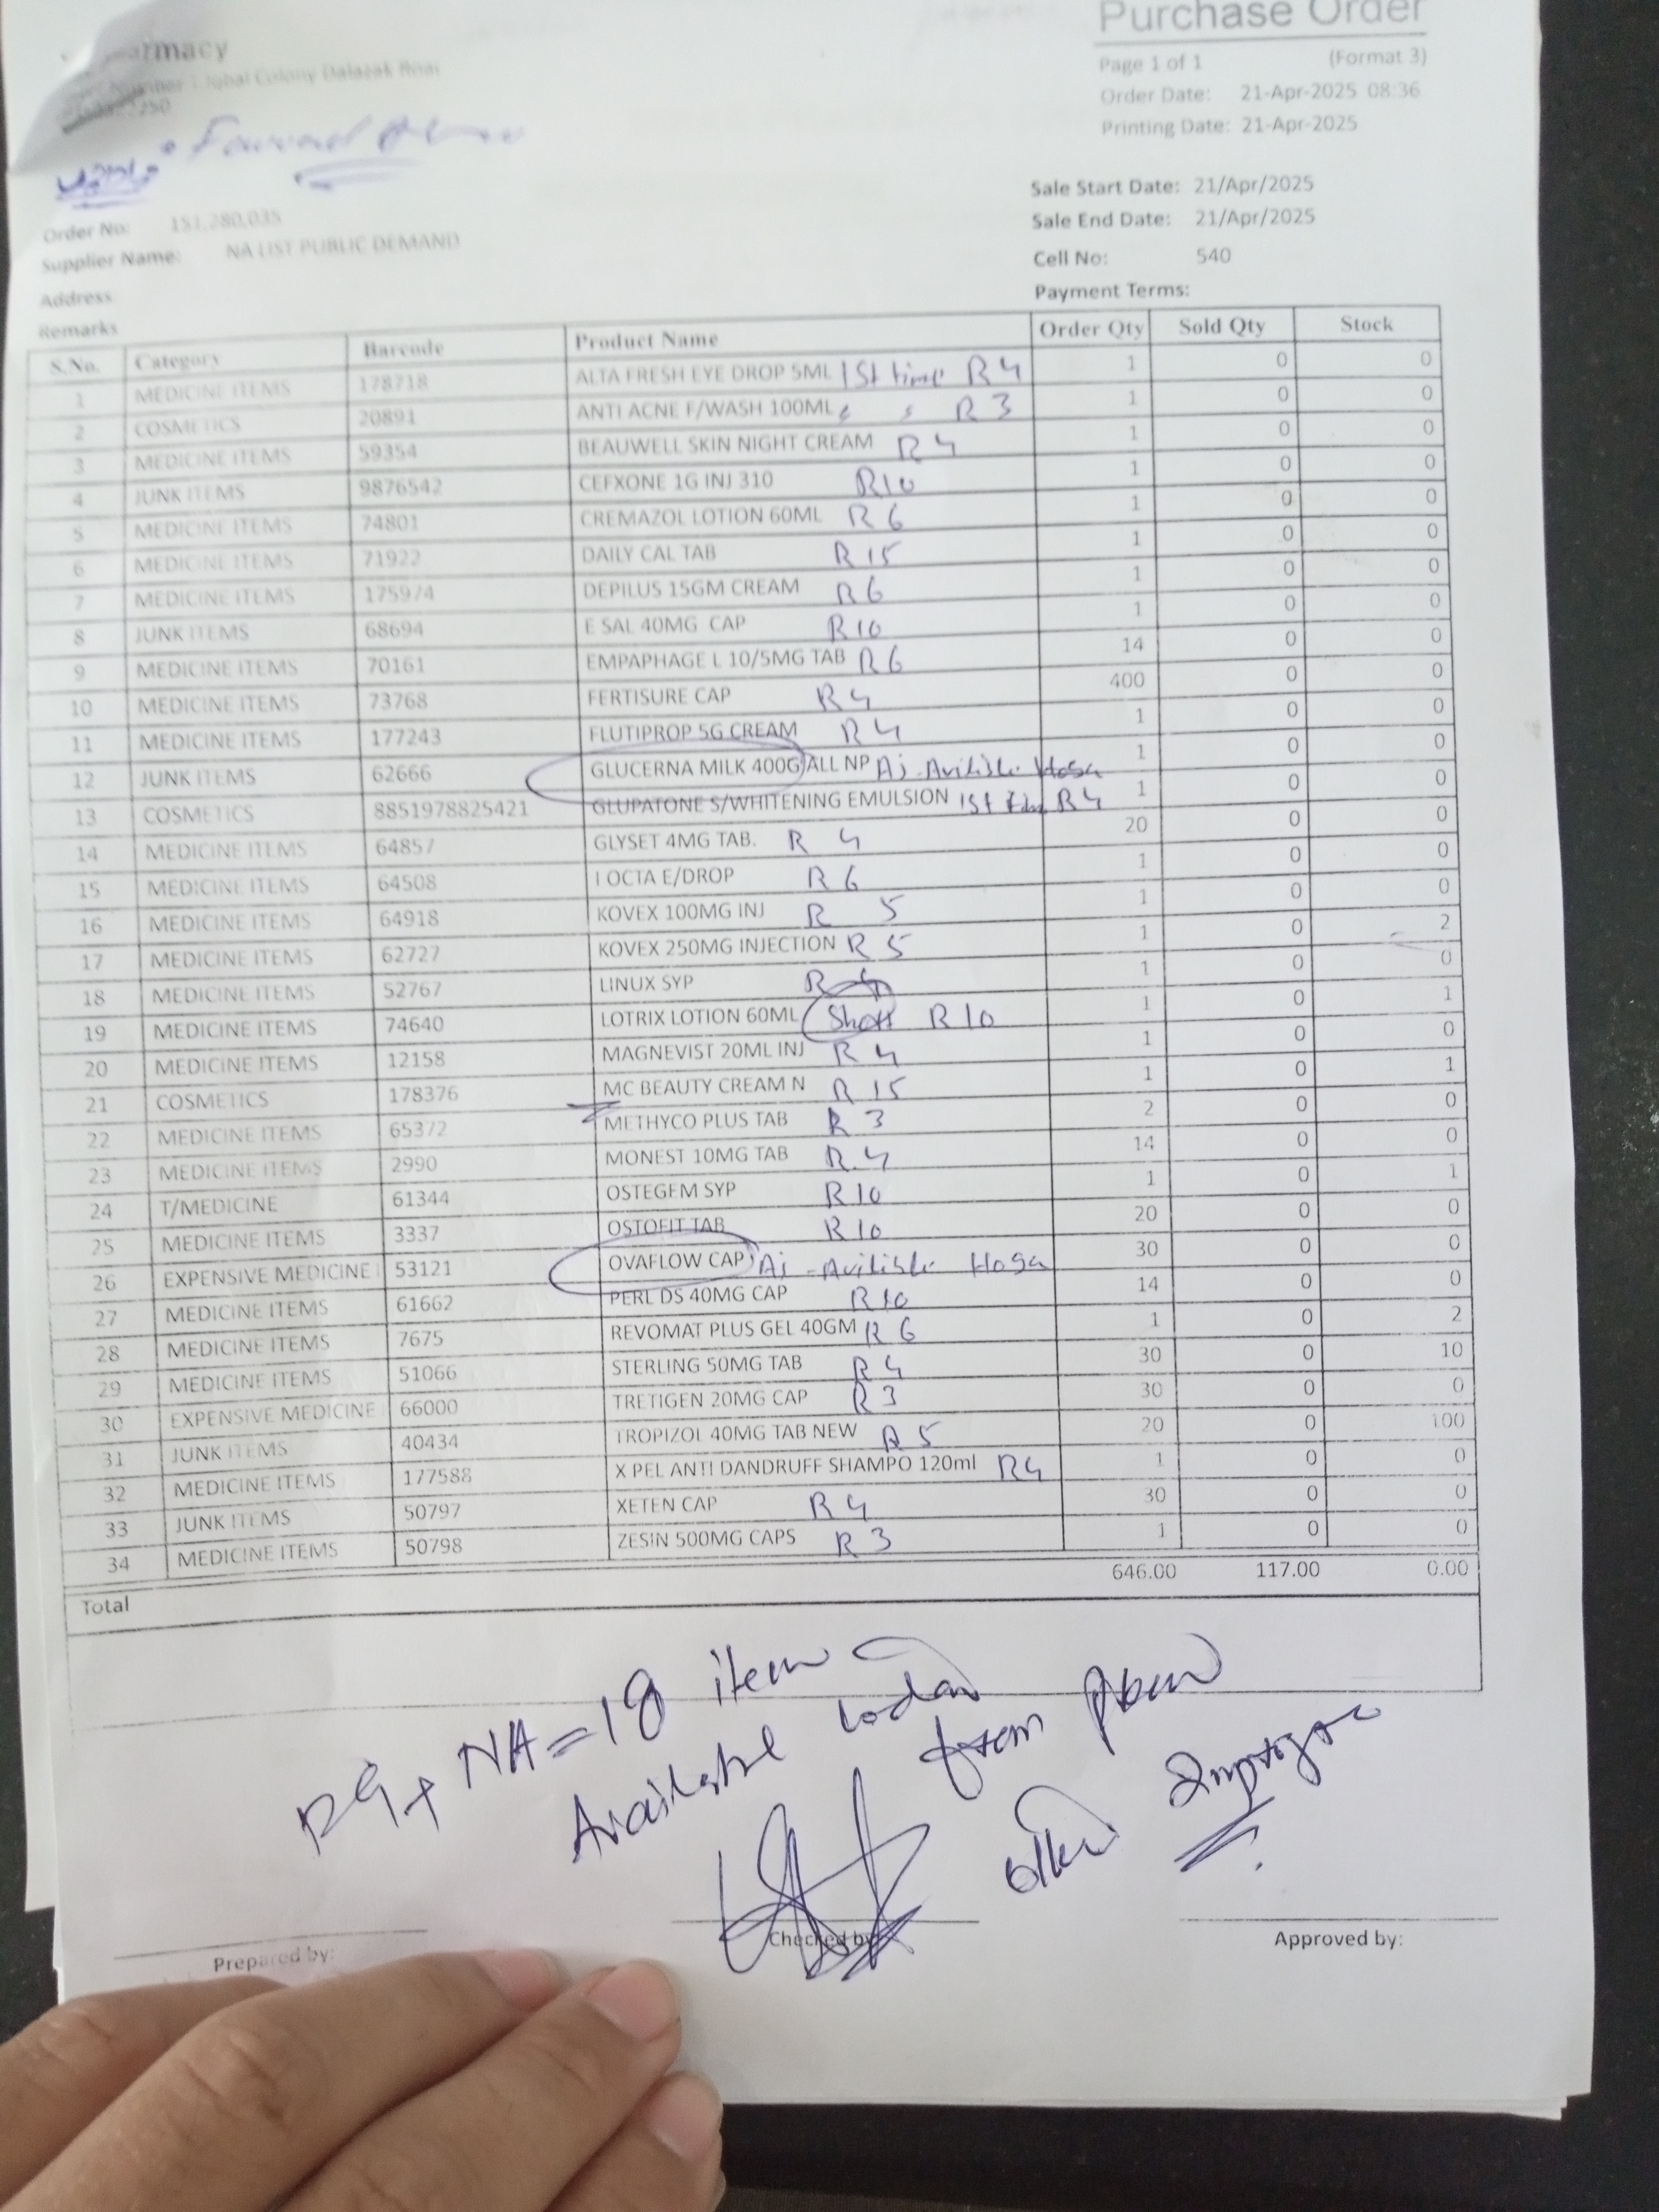 Purchase Order
Page 1 of 1 (Format 3)
Order Date: 21-Apr-2025 08:36
Printing Date: 21-Apr-2025
Iqbal Colony Dalazak Road
Order No: 151,280,035
Supplier Name: NA LIST PUBLIC DEMAND
Address:
Remarks
Sale Start Date: 21/Apr/2025
Sale End Date: 21/Apr/2025
Cell No: 540
Payment Terms:
S.No. Category Barcode Product Name Order Qty Sold Qty Stock
1 MEDICINE ITEMS 178718 ALTA FRESH EYE DROP 5ML 1St time R 4 1 0 0
2 COSMETICS 20891 ANTI ACNE F/WASH 100ML R 3 1 0 0
3 MEDICINE ITEMS 59354 BEAUWELL SKIN NIGHT CREAM R 4 1 0 0
4 JUNK ITEMS 9876542 CEFXONE 1G INJ 310 R10 1 0 0
5 MEDICINE ITEMS 74801 CREMAZOL LOTION 60ML R 6 1 0 0
6 MEDICINE ITEMS 71922 DAILY CAL TAB R 15 1 0 0
7 MEDICINE ITEMS 175974 DEPILUS 15GM CREAM R 6 1 0 0
8 JUNK ITEMS 68694 E SAL 40MG CAP R 10 1 0 0
9 MEDICINE ITEMS 70161 EMPAPHAGE L 10/5MG TAB R 6 14 0 0
10 MEDICINE ITEMS 73768 FERTISURE CAP R 4 400 0 0
11 MEDICINE ITEMS 177243 FLUTIPROP 5G CREAM R 4 1 0 0
12 JUNK ITEMS 62666 GLUCERNA MILK 400G ALL NP Aj Avilible Hoga 1 0 0
13 COSMETICS 8851978825421 GLUPATONE S/WHITENING EMULSION 1St R 4 1 0 0
14 MEDICINE ITEMS 64857 GLYSET 4MG TAB. R 4 20 0 0
15 MEDICINE ITEMS 64508 I OCTA E/DROP R 6 1 0 0
16 MEDICINE ITEMS 64918 KOVEX 100MG INJ R 5 1 0 0
17 MEDICINE ITEMS 62727 KOVEX 250MG INJECTION R 5 1 0 2
18 MEDICINE ITEMS 52767 LINUX SYP R 1 0 0
19 MEDICINE ITEMS 74640 LOTRIX LOTION 60ML Short R 10 1 0 1
20 MEDICINE ITEMS 12158 MAGNEVIST 20ML INJ R 4 1 0 0
21 COSMETICS 178376 MC BEAUTY CREAM N R 15 1 0 1
22 MEDICINE ITEMS 65372 METHYCO PLUS TAB R 3 2 0 0
23 MEDICINE ITEMS 2990 MONEST 10MG TAB R 4 14 0 0
24 T/MEDICINE 61344 OSTEGEM SYP R 10 1 0 1
25 MEDICINE ITEMS 3337 OSTOFIT TAB R 10 20 0 0
26 EXPENSIVE MEDICINE 53121 OVAFLOW CAP Aj Avilible Hoga 30 0 0
27 MEDICINE ITEMS 61662 PERL DS 40MG CAP R 10 14 0 0
28 MEDICINE ITEMS 7675 REVOMAT PLUS GEL 40GM R 6 1 0 2
29 MEDICINE ITEMS 51066 STERLING 50MG TAB R 4 30 0 10
30 EXPENSIVE MEDICINE 66000 TRETIGEN 20MG CAP R 3 30 0 0
31 JUNK ITEMS 40434 TROPIZOL 40MG TAB NEW R 5 20 0 100
32 MEDICINE ITEMS 177588 X PEL ANTI DANDRUFF SHAMPO 120ml R4 1 0 0
33 JUNK ITEMS 50797 XETEN CAP R 4 30 0 0
34 MEDICINE ITEMS 50798 ZESIN 500MG CAPS R 3 1 0 0
Total 646.00 117.00 0.00
NA = 18 item
Available
from
Prepared by: Checked by: Approved by: